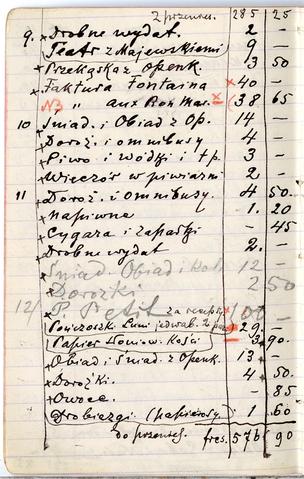 z przenies. 285 25
9. Drobne wydat. 2 -
Teatr z Majewskiemi 9 -
Przekąska z Openk. 3 50
Faktura Fontaina 40 -
N3 " aux Bon Mar. 38 65
10 Śniad. i Obiad z Op. 14 -
Doroż. i omnibusy 4 -
Piwo i wódki i t p. 3 -
Wieczór w piwiarni 2 -
11 Doroż. i omnibusy. 4 50.
Napiwne 1. 20
Cygara i zapałki - 45
Drobne wydat 2. -
Śniad. Obiad i Kol. 12 -
Dorożki 2 50
12/ P. Petit 100 -
Pończoszki Luni jedwab. 2 par 29. -
Papier Słoniow. Kości 3 90.
Obiad i Śniad. z Openk. 13 -
Dorożki. 4 50.
Owoce. - 85.
Drobiazgi (papierosy) 1 60
do przenies. frcs. 576 90